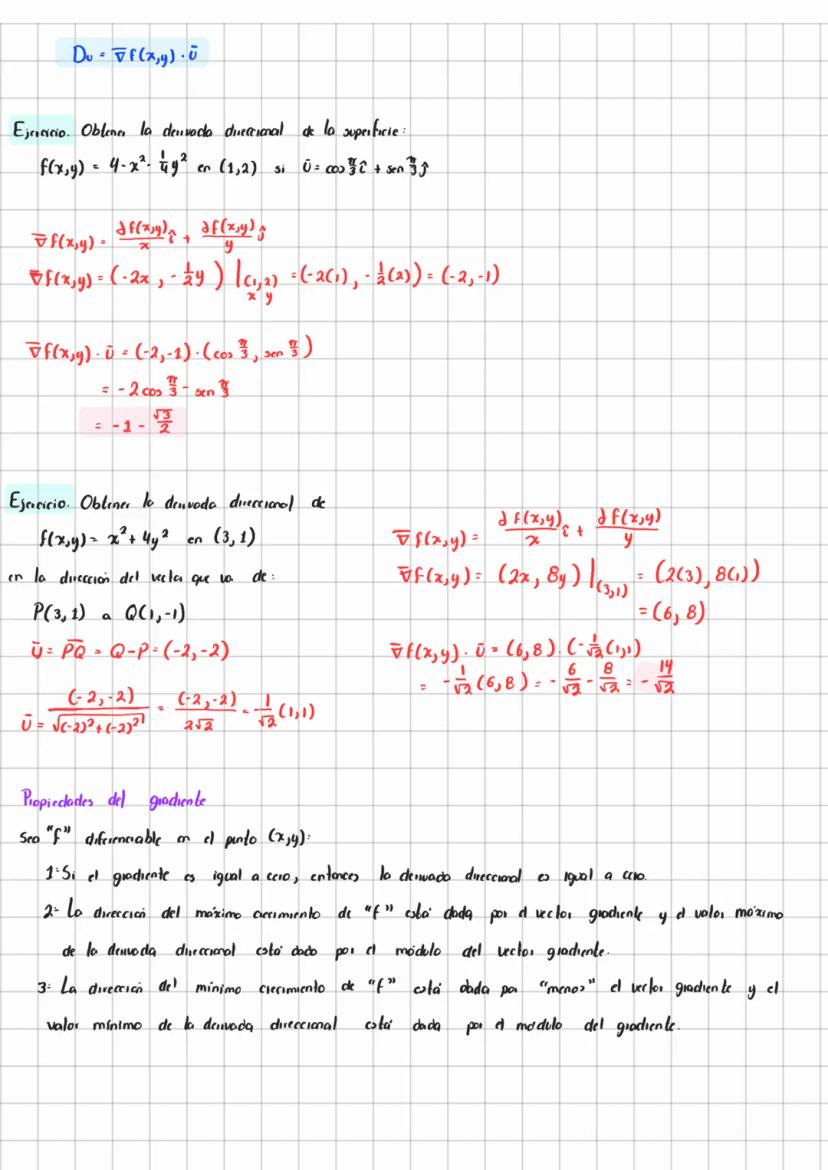 Du = ∇f(x,y)·ū
Ejercicio. Obtener la derivada direccional de la superficie:
f(x,y) = 4-x²-1/4y² en (1,2) si ū = cos π/3 î + sen π/3 ĵ
∇f(x,y) = ∂f(x,y)/x î + ∂f(x,y)/y ĵ
∇f(x,y) = (-2x, -1/2y)|(1,2) = (-2(1), -1/2(2)) = (-2,-1)
x y
∇f(x,y)·ū = (-2,-1)·(cos π/3, sen π/3)
= -2 cos π/3 - sen π/3
= -1 - √3/2
Ejercicio. Obtener la derivada direccional de
f(x,y) = x²+4y² en (3,1)
en la dirección del vector que va de:
P(3,1) a Q(1,-1)
ū = PQ = Q-P = (-2,-2)
ū = (-2,-2)/√(-2)²+(-2)² = (-2,-2)/2√2 = -1/√2 (1,1)
∇f(x,y) = ∂f(x,y)/x î + ∂f(x,y)/y
∇f(x,y) = (2x, 8y)|(3,1) = (2(3), 8(1))
= (6,8)
∇f(x,y)·ū = (6,8)·(-1/√2(1,1)
= -1/√2(6,8) = -6/√2 - 8/√2 = -14/√2
Propiedades del gradiente
Sea "f" diferenciable en el punto (x,y):
1: Si el gradiente es igual a cero, entonces la derivada direccional es igual a cero.
2: La dirección del máximo crecimiento de "f" está dada por el vector gradiente y el valor máximo
de la derivada direccional está dado por el módulo del vector gradiente.
3: La dirección del mínimo crecimiento de "f" está dada por "menos" el vector gradiente y el
valor mínimo de la derivada direccional está dada por el modulo del gradiente.